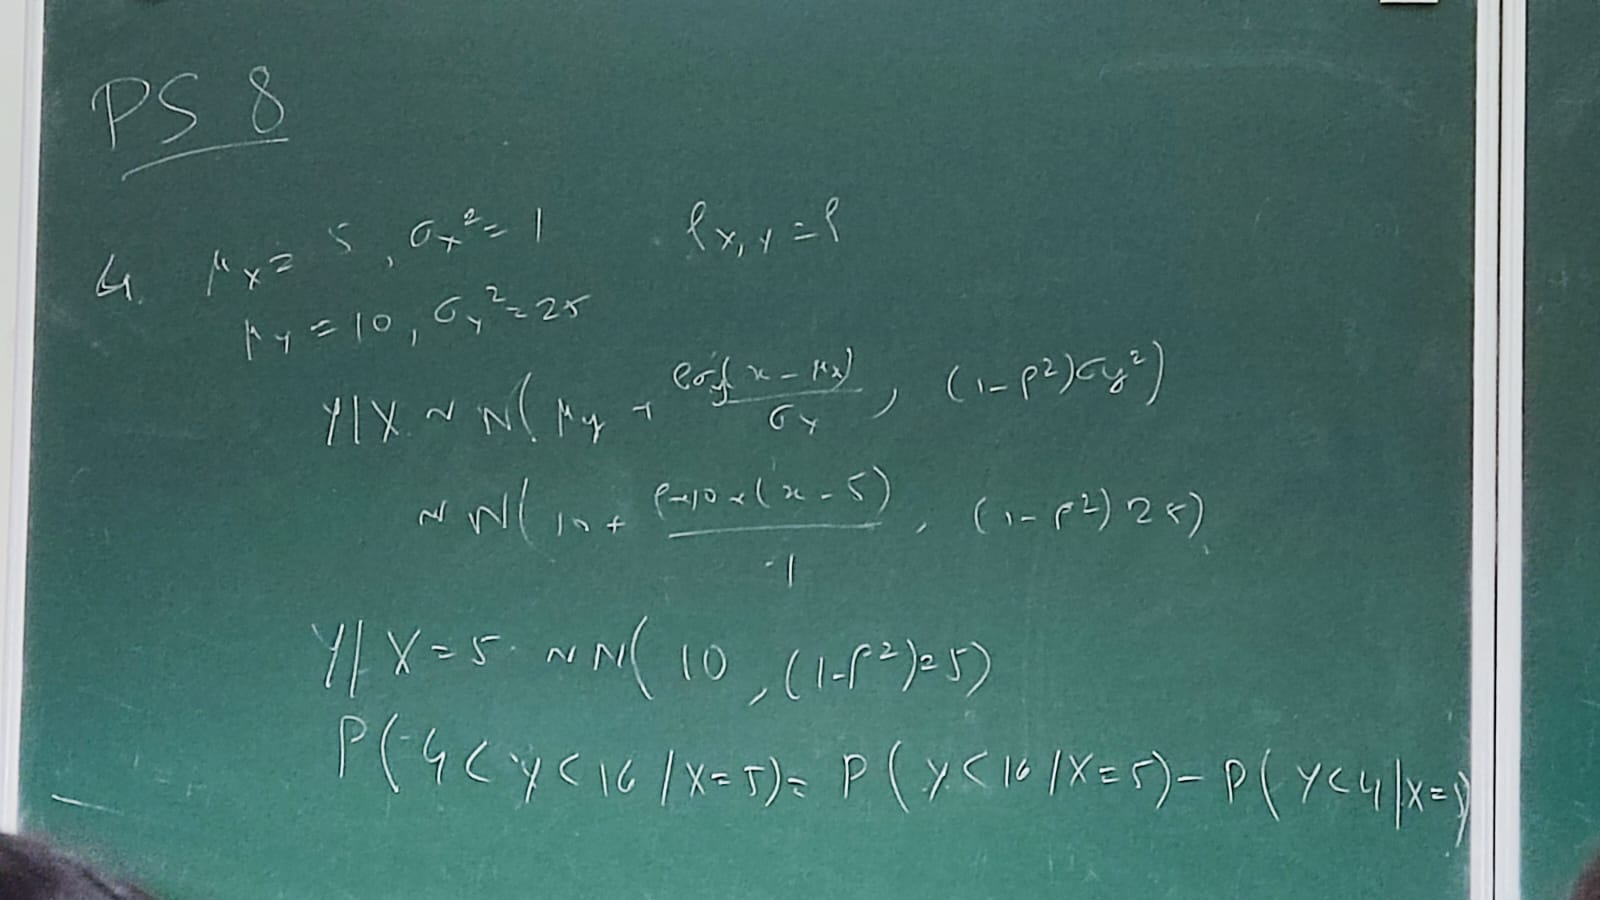 PS 8
4. μx = 5, σx² = 1 ρx,y = ρ
μy = 10, σy² = 25
Y|X ~ N( μy + ρσy(x - μx) / σx , (1-ρ²)σy²)
~ N( 10 + ρ×10×(x - 5) / 1 , (1-ρ²) 25)
Y|X = 5 ~ N( 10 , (1-ρ²)25)
P( 4 < y < 16 | X = 5) = P( y < 16 | X = 5) - P( Y < 4 | X = 5)